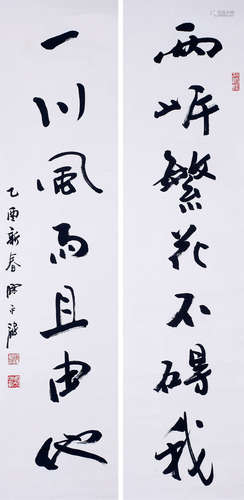 两岸繁花不碍我
一川风雨且由他
乙酉新春